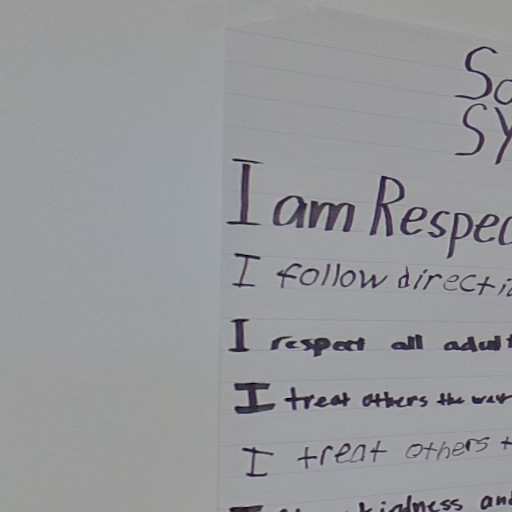 So
SY
I am Respec
I follow directi
I respect all adult
I treat others the way
I treat others t
kindness and